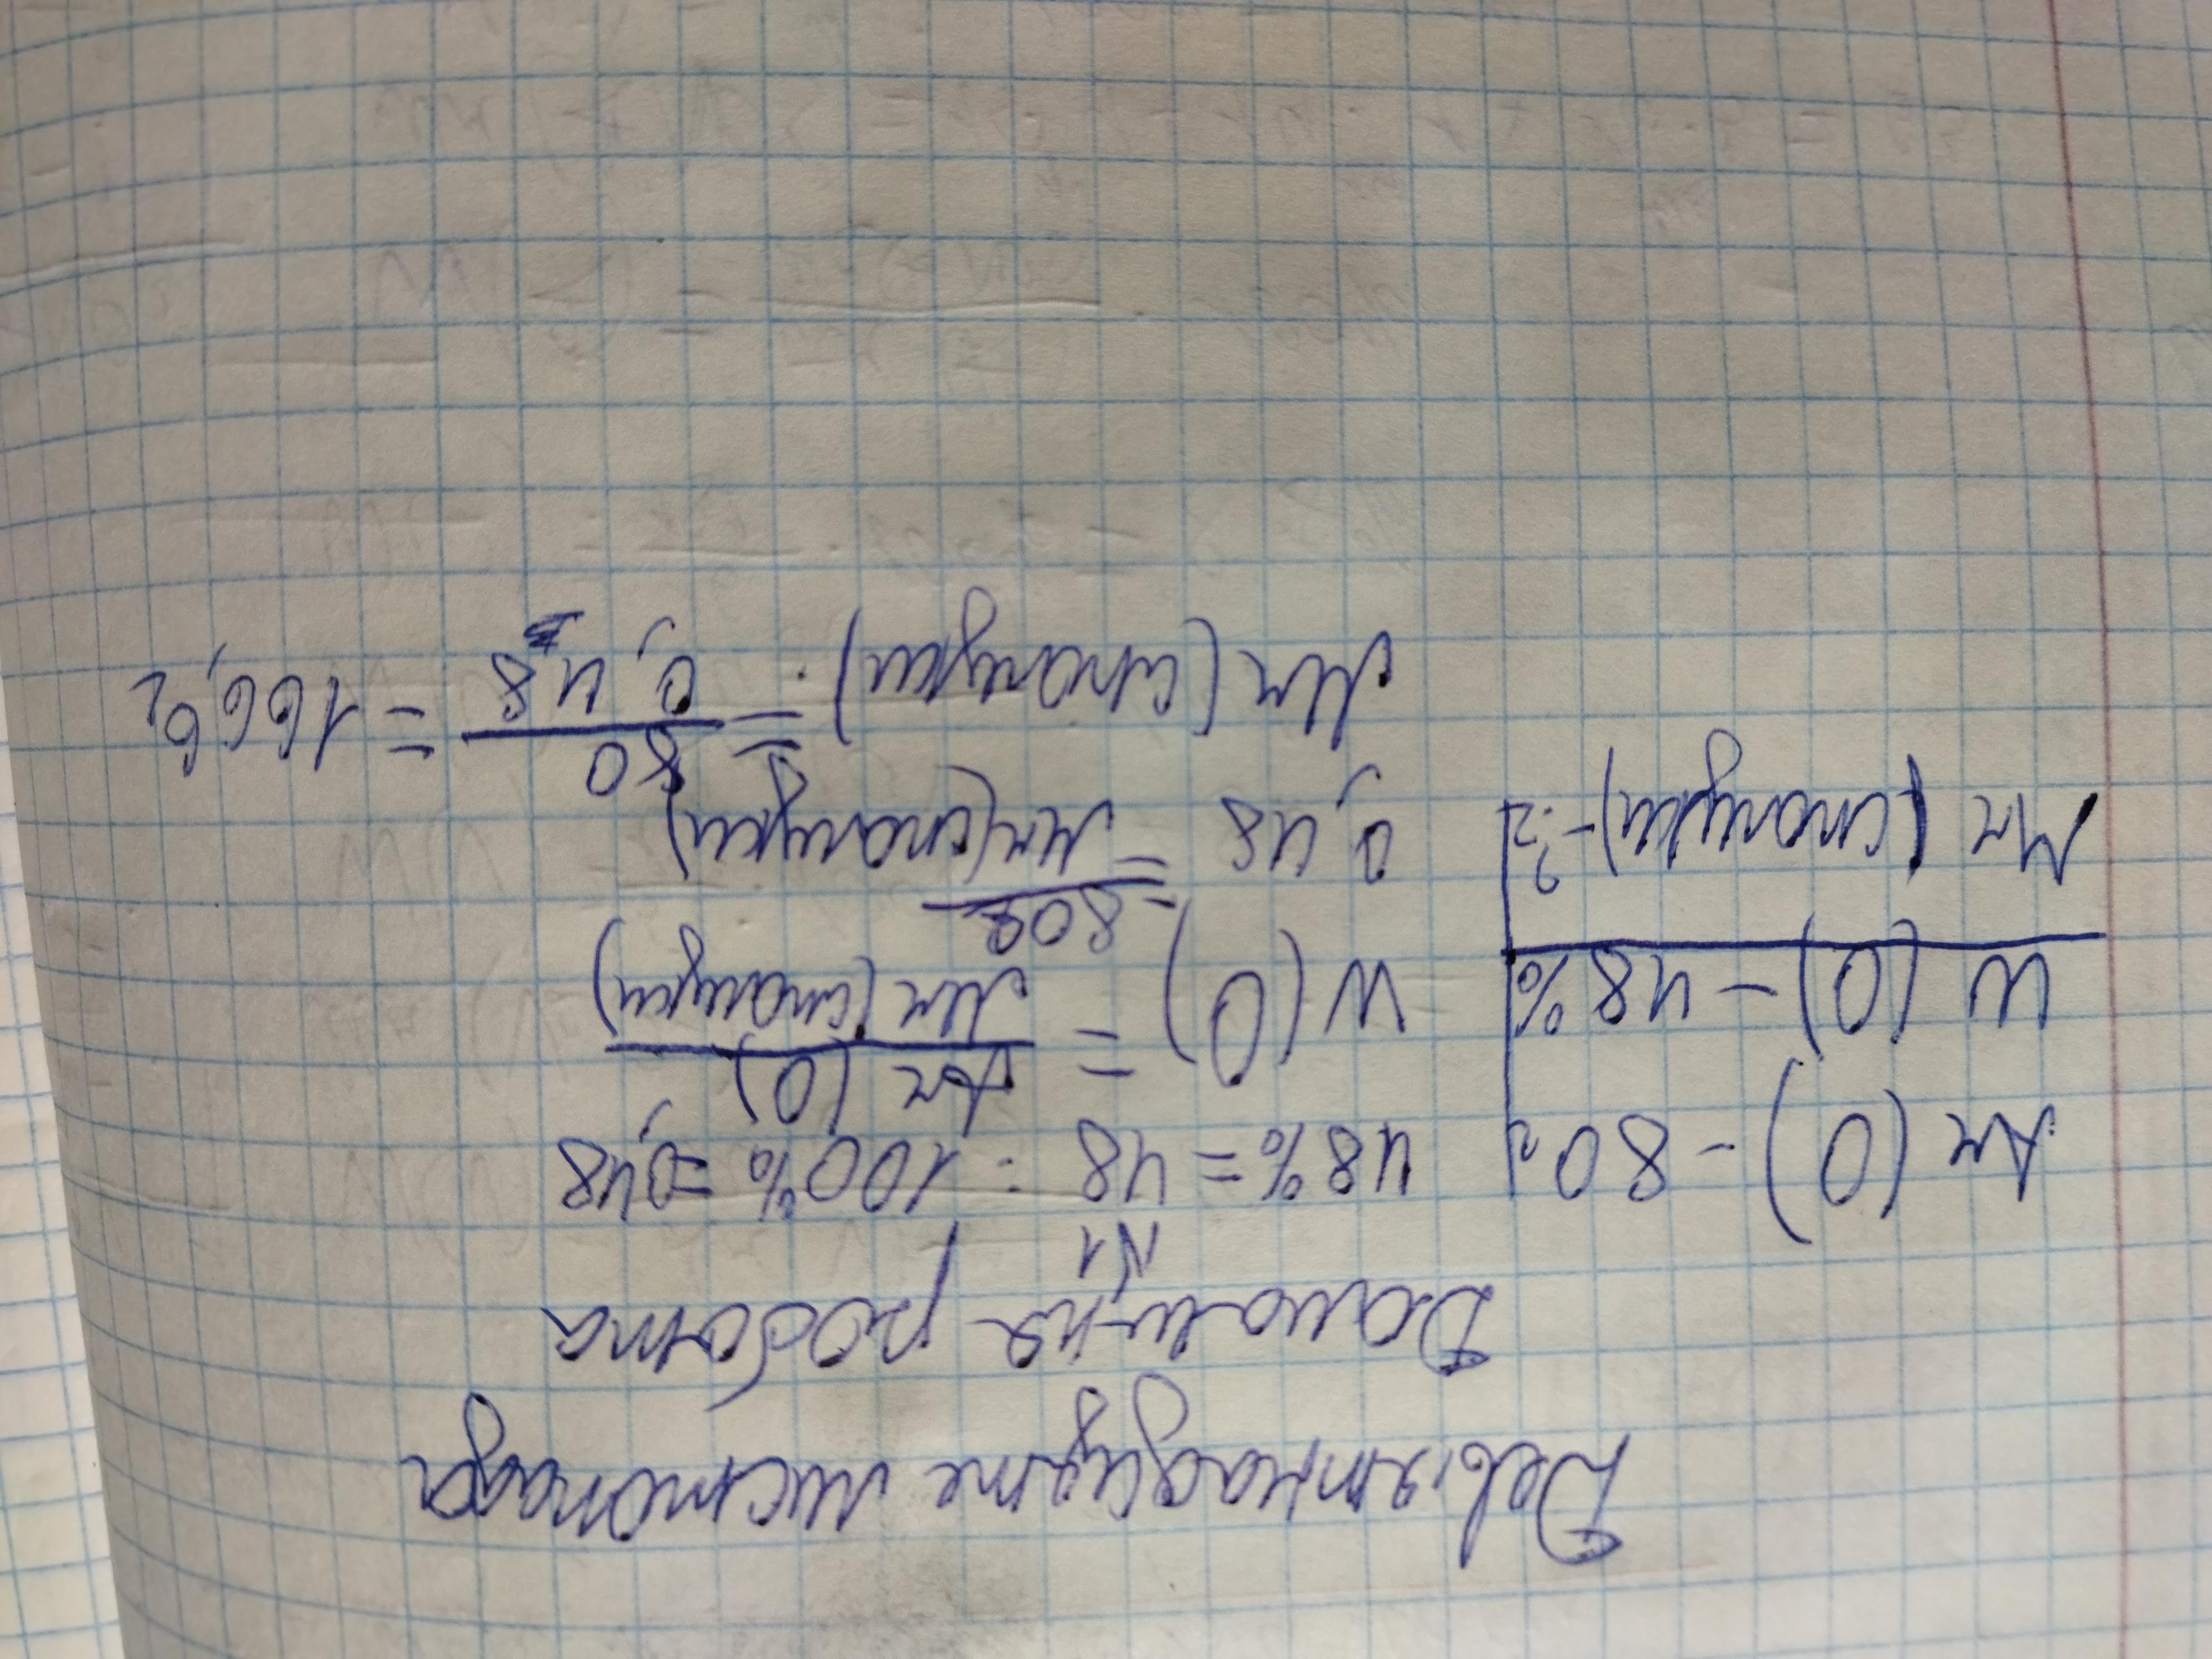 Дев'ятнадцяте листопада
Домашня робота
№1
Ar (O) - 80г
W (O) - 48%
Mr (сполуки) - ?г
48% = 48 : 100% = 0,48
W (O) = Ar (O) / Mr (сполуки)
0,48 = 80г / Mr (сполуки)
Mr (сполуки) = 80 / 0,48 = 166,6г